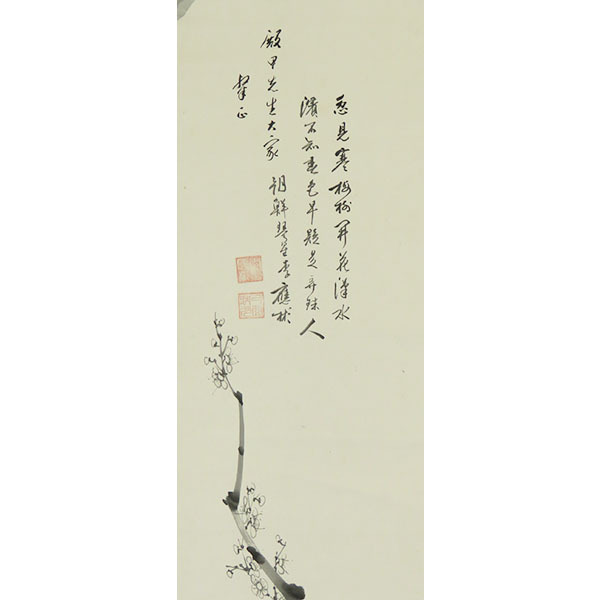 忽見寒梅樹開花漢水
濱不知春色早疑是弄珠人
殿甲先生大家
粲正
朝鮮琴星李應彬